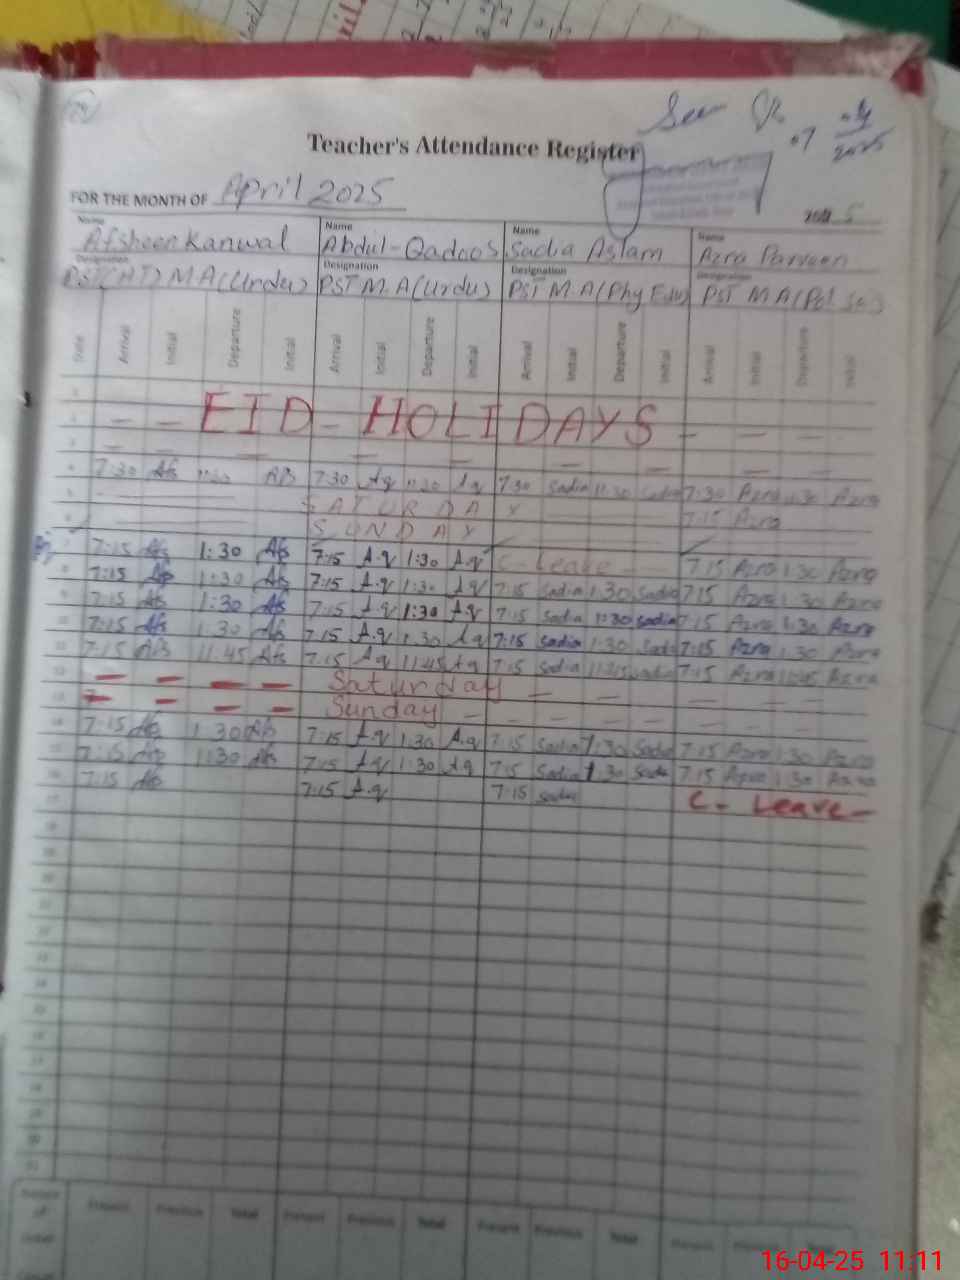 Seen
07 04 2025
Teacher's Attendance Register
FOR THE MONTH OF April 2025
Name Afsheen Kanwal Name Abdul-Qadoos Name Sadia Aslam Name Azra Parveen
Designation PST(HT) M A(Urdu) Designation PST M.A(Urdu) Designation PST M.A(Phy Edu) Designation PST M A(Pol Sc)
Date Arrival Initial Departure Initial Arrival Initial Departure Initial Arrival Initial Departure Initial Arrival Initial Departure Initial
EID HOLIDAYS
7:30 Afs 11:30 Afs 7:30 Aq 11:30 Aq 7:30 Sadia 11:30 Sadia 7:30 Azra 11:30 Azra
SATURDAY 7:15 Azra
SUNDAY
7:15 Afs 1:30 Afs 7:15 A.q 1:30 A.q C-Leave 7:15 Azra 1:30 Azra
7:15 Afs 1:30 Afs 7:15 A.q 1:30 A.q 7:15 Sadia 1:30 Sadia 7:15 Azra 1:30 Azra
7:15 Afs 1:30 Afs 7:15 A.q 1:30 A.q 7:15 Sadia 1:30 Sadia 7:15 Azra 1:30 Azra
7:15 Afs 1:30 Afs 7:15 A.q 1:30 A.q 7:15 Sadia 1:30 Sadia 7:15 Azra 1:30 Azra
7:15 Afs 11:45 Afs 7:15 A.q 11:45 A.q 7:15 Sadia 11:45 Sadia 7:15 Azra 11:45 Azra
Saturday
Sunday
7:15 Afs 1:30 Afs 7:15 A.q 1:30 A.q 7:15 Sadia 1:30 Sadia 7:15 Azra 1:30 Azra
7:15 Afs 1:30 Afs 7:15 A.q 1:30 A.q 7:15 Sadia 1:30 Sadia 7:15 Azra 1:30 Azra
7:15 Afs 7:15 A.q 7:15 Sadia C-Leave
Present Previous Total Present Previous Total Present Previous Total Present Previous Total
16-04-25 11:11